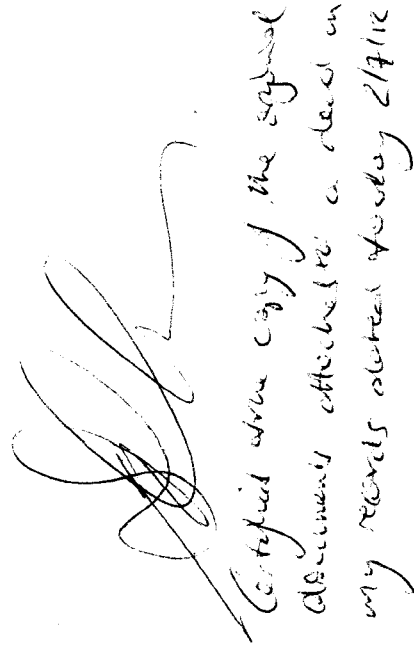 Certified a true copy of the original
documents attached to a deed in
my records dated today 2/7/12